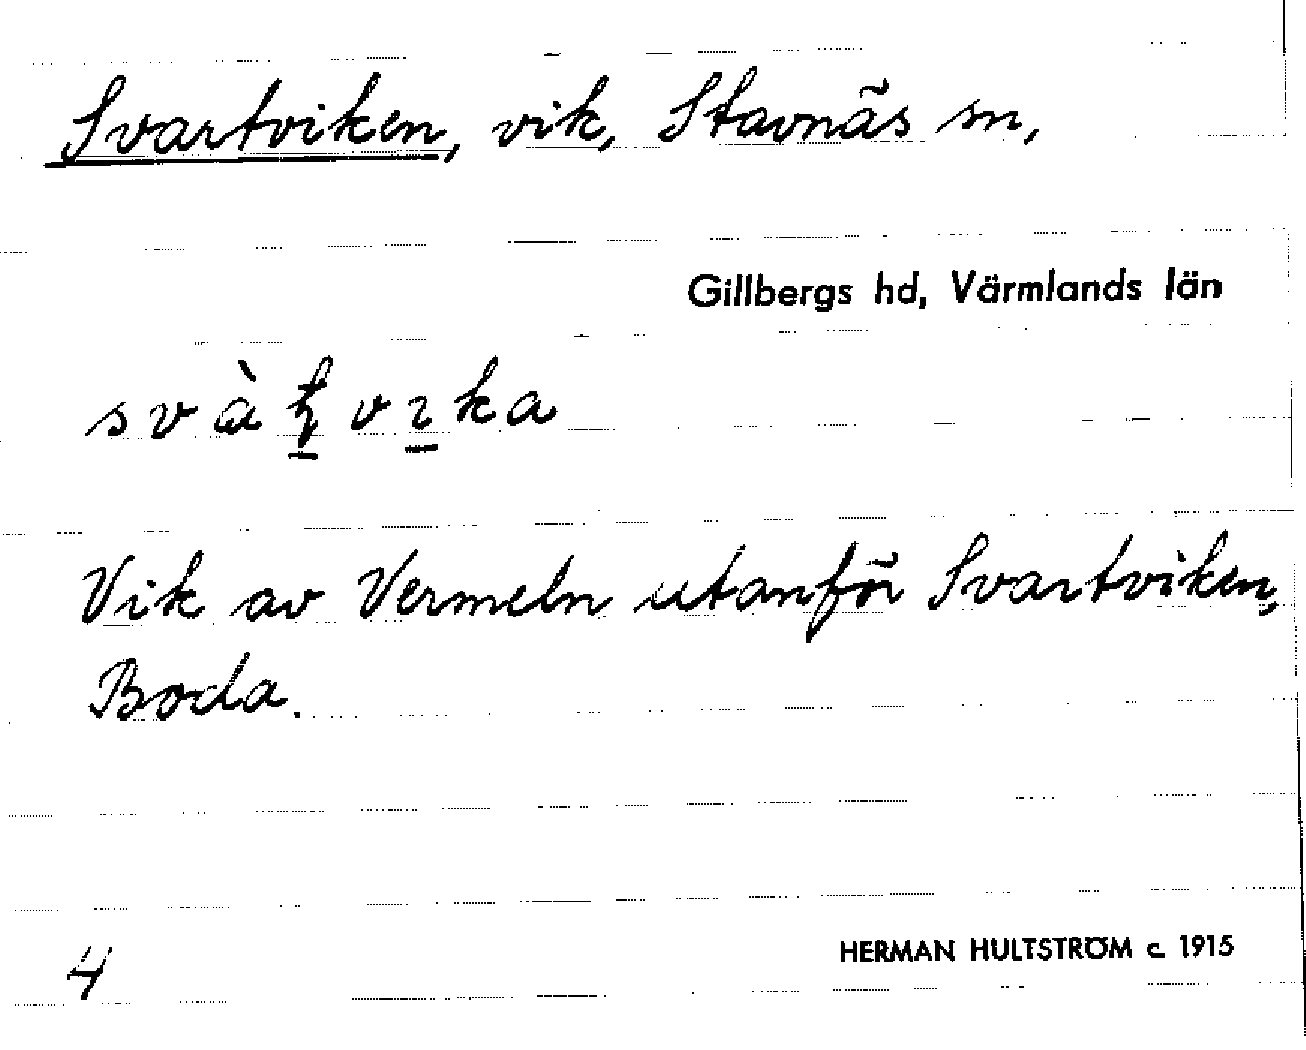 Svartviken, vik, Stavnäs sn,
Gillbergs hd, Värmlands län
Vik av Vermeln utanför Svartviken,
Boda.
4
HERMAN HULTSTRÖM c. 1915